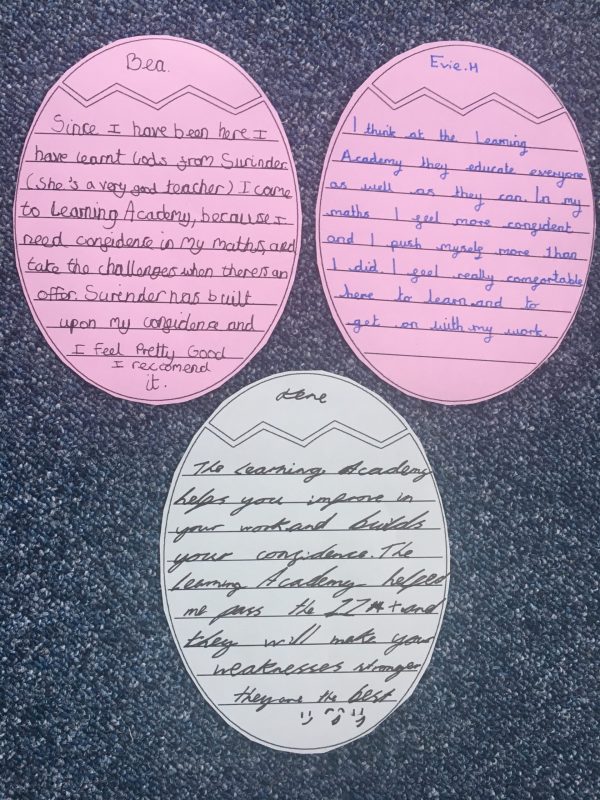 Bea.
Since I have been here I
have learnt lods from Surinder
(she's a very good teacher) I came
to Learning Academy, because I
need confidence in my maths, and
take the challenges when theres an
offer. Surinder has built
upon my confidence and
I feel Pretty Good
I reccomend
it.
Evie.H
I think at the Learning
Academy they educate everyone
as well as they can. In my
maths I feel more confident
and I push myself more than
I did. I feel really comfortable
here to learn and to
get on with my work.
The Learning Academy
helps you improve in
your work and builds
your confidence. The
Learning Academy helped
me pass the 11+ and
they will make your
weaknesses stronger
they are the best